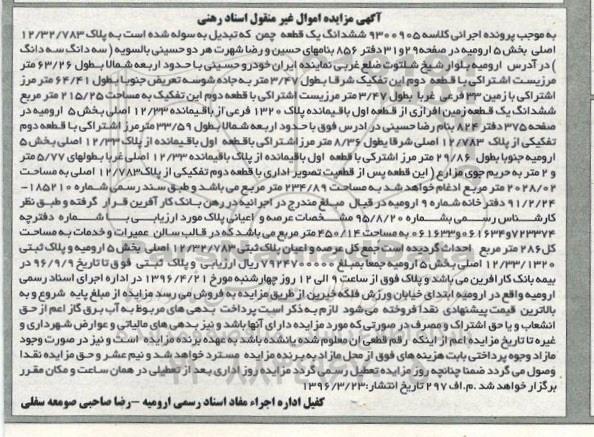 آگهی مزایده اموال غیر منقول اسناد رهنی
به موجب پرونده اجرائی کلاسه 9300905 ششدانگ یک قطعه چمن که تبدیل به سوله شده است به پلاک 12/32/783
اصلی بخش 5 ارومیه در صفحه 29 و 31 دفتر 856 بنامهای حسین و رضا شهرت هر دو حسینی بالسویه ( سه دانگ سه دانگ
) در آدرس ارومیه بلوار شیخ شلتوت ضلع غربی نماینده ایران خودرو حسینی با حدود اربعه شمالا بطول 63/26 متر
مرزیست اشتراکی با قطعه دوم این تفکیک شرقا بطول 3/47 متر به جاده شوسه تعریض جنوبا بطول 64/41 متر مرز
اشتراکی با زمین 33 فرعی غربا بطول 3/47 متر مرز اشتراکی با قطعه دوم این تفکیک به مساحت 215/25 متر مربع
ششدانگ یک قطعه زمین افرازی از قطعه اول باقیمانده پلاک 1320 فرعی از باقیمانده 12/33 اصلی بخش 5 ارومیه در
صفحه 375 دفتر 824 بنام رضا حسینی در ادرس فوق با حدود اربعه شمالا بطول 33/59 متر مرز اشتراکی با قطعه دوم
تفکیکی از پلاک 12/783 اصلی شرقا بطول 8/36 متر مرز اشتراکی باقطعه اول باقیمانده از پلاک 12/33 اصلی بخش 5
ارومیه جنوبا بطول 29/86 متر مرز اشترکی با قطعه اول باقیمانده از پلاک باقیمانده 12/33 اصلی غربا بطولهای 5/77 متر
و 2 متر به حریم جوی مزارع ( این قطعه پس از قطعیت تصویر اداری با قطعه دوم تفکیکی از پلاک 12/783 اصلی به مساحت
2028/02 متر مربع ادغام خواهد شد به مساحت 234/89 متر مربع می باشد و طبق سند رسمی شماره 185210-
91/2/24 دفتر خانه شماره 9 ارومیه در قبال مبلغ مندرج در اجرائیه در رهن بانک کار آفرین قرار گرفته و طبق نظر
کارشناس رسمی بشماره 95/8/20 مشخصات عرصه و اعیانی پلاک مورد ارزیابی با شماره دفترچه
723374 و 061634 و 061633 به مساحت 450/14 متر مربع می باشد که در قالب سالن عمیرات و خدمات به مساحت
کل 286 متر مربع احداث گردیده است جمع کل عرصه و اعیان پلاک ثبتی 12/32/783 اصلی بخش 5 ارومیه و پلاک ثبتی
12/33/1320 اصلی بخش 5 ارومیه جمعا بمبلغ ریال ارزیابی و پلاک ثبتی فوق تا تاریخ 96/9/9 در
بیمه بانک کارآفرین می باشد و پلاک فوق از ساعت 9 الی 12 روز چهارشنبه مورخ 1396/4/21 در اداره اجرای اسناد رسمی
ارومیه واقع در ارومیه ابتدای خیابان ورزش فلکه خیرین از طریق مزایده به فروش می رسد مزایده از مبلغ پایه شروع و به
بالاترین قیمت پیشنهادی نقدا فروخته می شود لازم به ذکر است پرداخت بدهی های مربوط به آب برق گاز اعم از حق
انشعاب و یا حق اشتراک و مصرف در صورتی که مورد مزایده دارای آنها باشد و نیز بدهی های مالیاتی و عوارض شهرداری و
غیره تا تاریخ مزایده اعم از اینکه رقم قطعی ان معلوم شده یا نشده باشد به عهده برنده مزایده است و نیز در صورت وجود
مازاد وجوه پرداختی بابت هزینه های فوق از محل مازاد به برنده مزایده مسترد خواهد شد و نیم عشر و حق مزایده نقدا
وصول می گردد ضمنا چنانچه روز مزایده تعطیل رسمی گردد مزایده روز اداری بعد از تعطیلی در همان ساعت و مکان مقرر
برگزار خواهد شد .م.اف 297 تاریخ انتشار: 1396/3/23
کفیل اداره اجراء مفاد اسناد رسمی ارومیه –رضا صاحبی صومعه سفلی